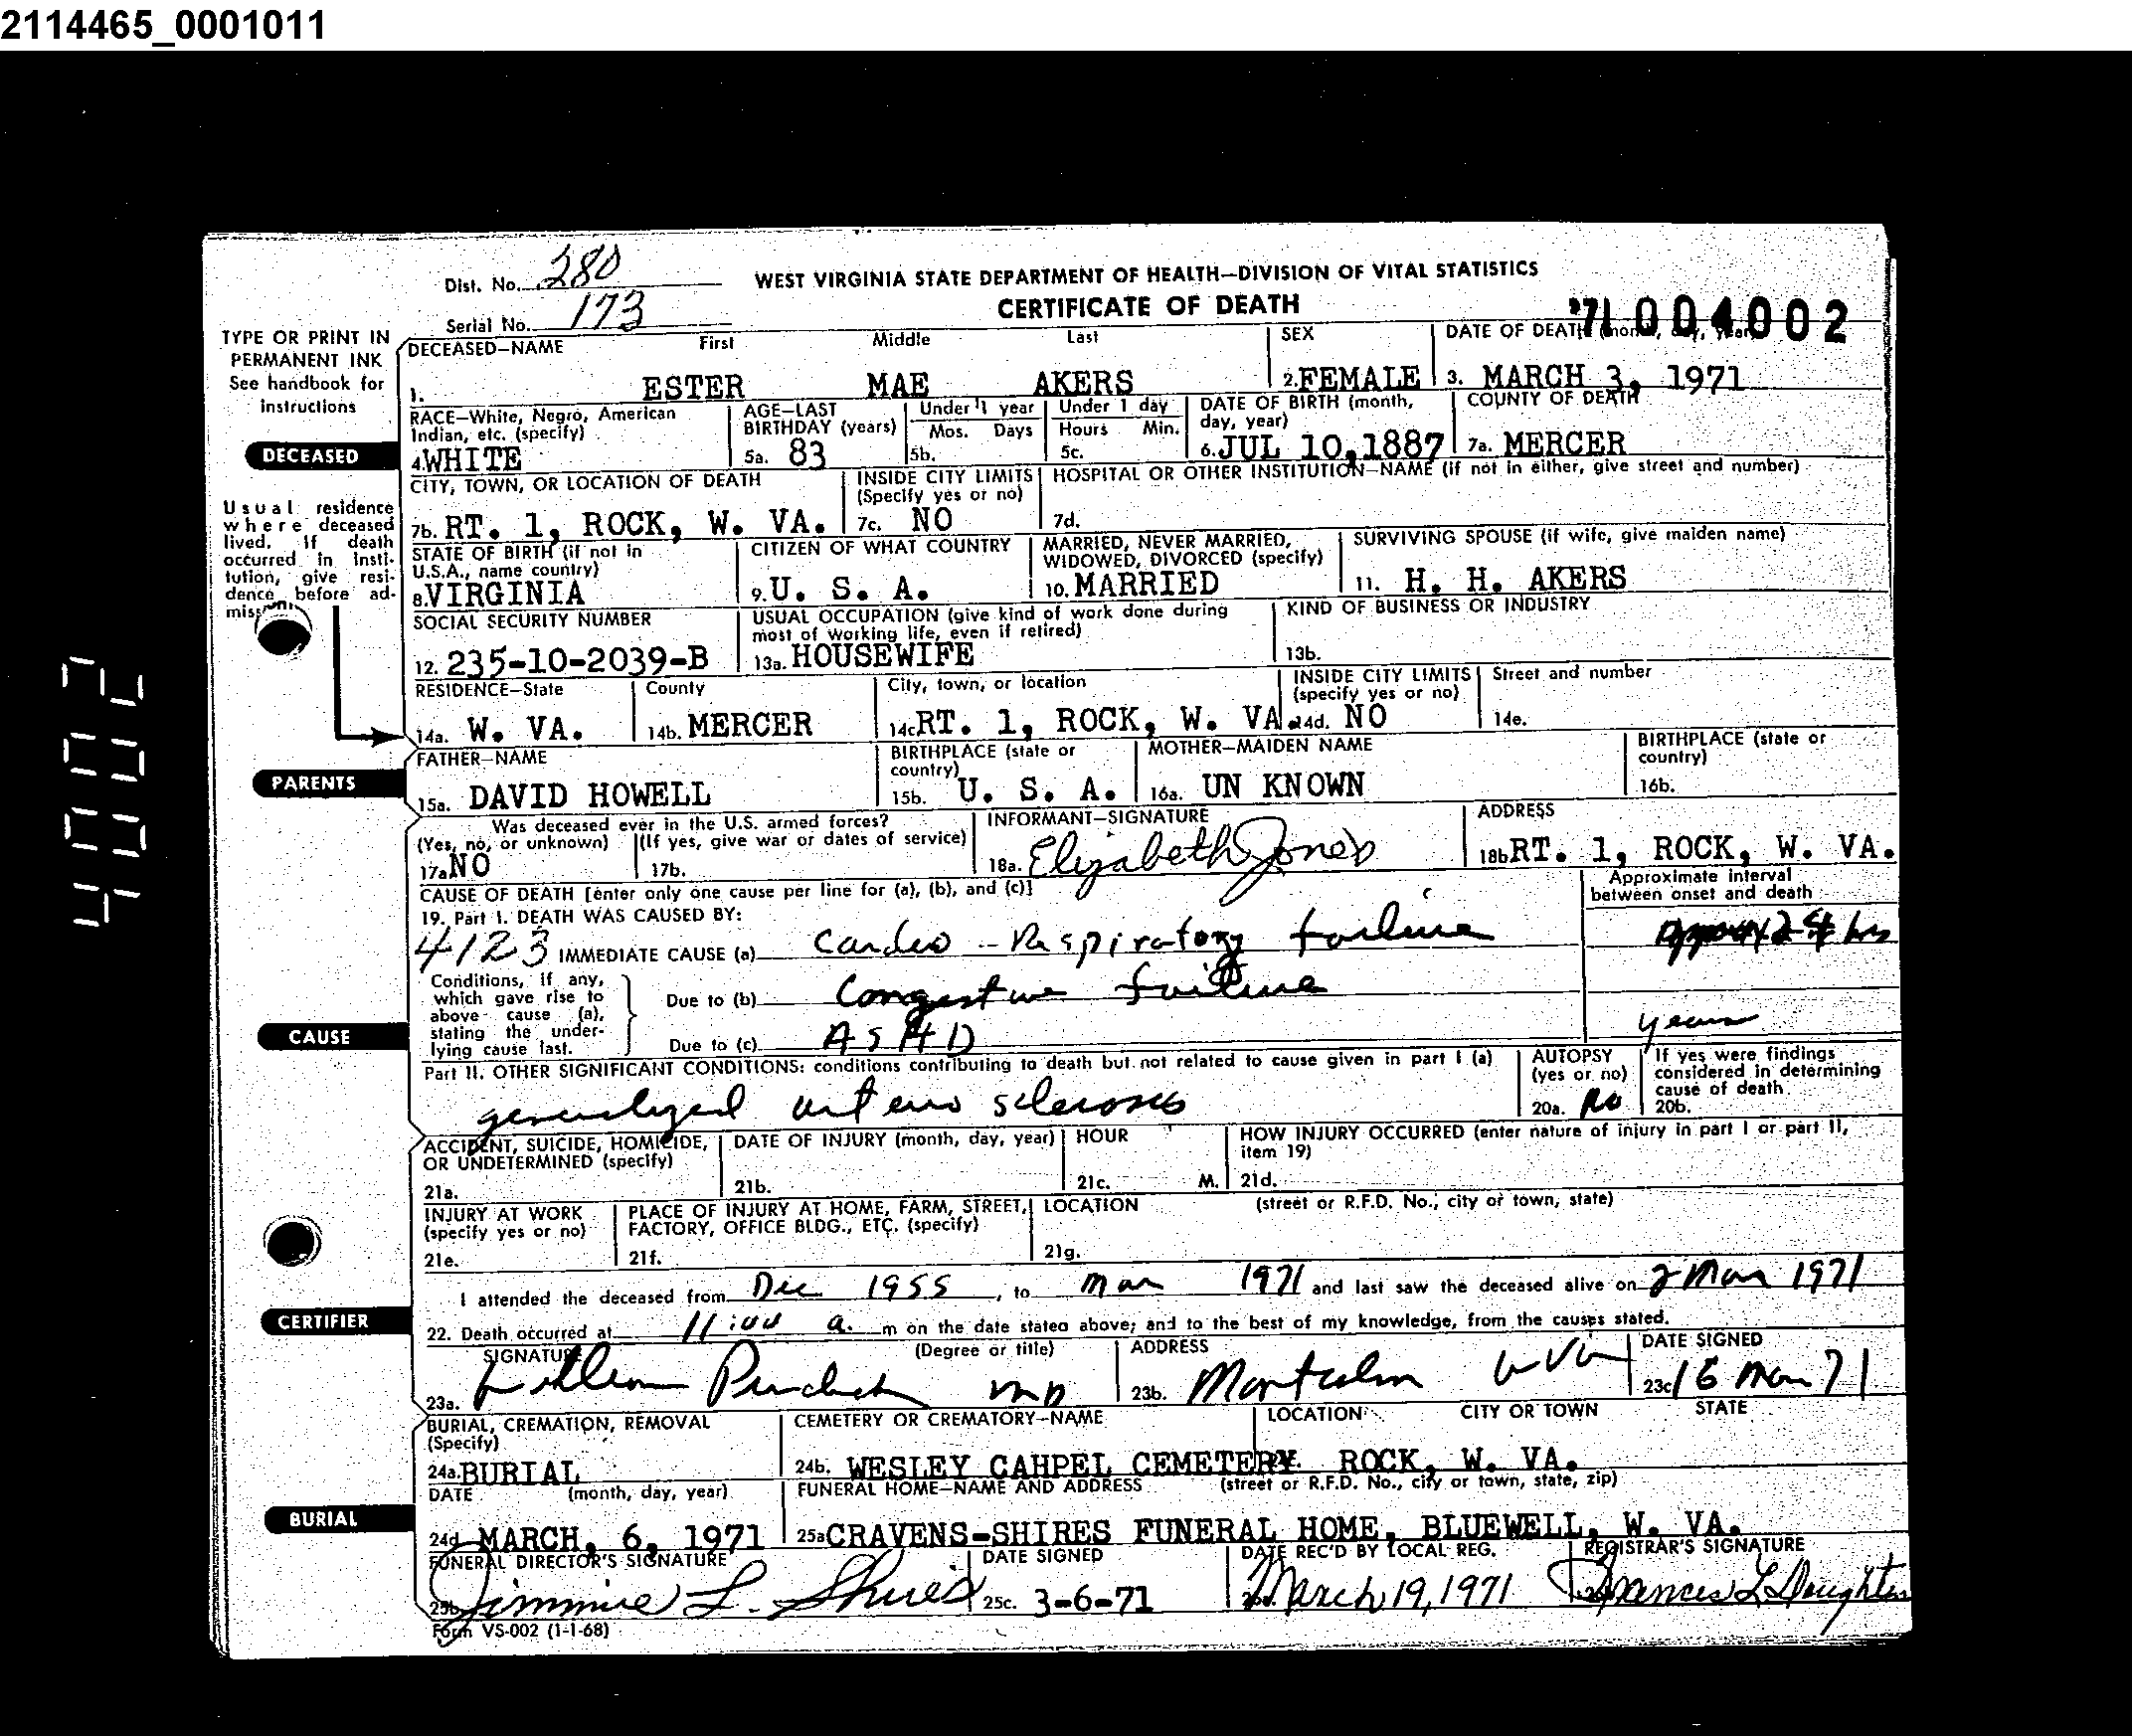 2114465_0001011
Dist. No. 280
WEST VIRGINIA STATE DEPARTMENT OF HEALTH—DIVISION OF VITAL STATISTICS
CERTIFICATE OF DEATH
Serial No. 173
'71 004002
TYPE OR PRINT IN
PERMANENT INK
See handbook for
instructions
DECEASED—NAME First Middle Last
1. ESTER MAE AKERS
SEX
2. FEMALE
DATE OF DEATH (month, day, year)
3. MARCH 3, 1971
DECEASED
RACE—White, Negro, American
Indian, etc. (specify)
4. WHITE
AGE—LAST
BIRTHDAY (years)
5a. 83
Under 1 year
Mos. Days
5b.
Under 1 day
Hours Min.
5c.
DATE OF BIRTH (month,
day, year)
6. JUL 10,1887
COUNTY OF DEATH
7a. MERCER
CITY, TOWN, OR LOCATION OF DEATH
7b. RT. 1, ROCK, W. VA.
INSIDE CITY LIMITS
(Specify yes or no)
7c. NO
HOSPITAL OR OTHER INSTITUTION—NAME (if not in either, give street and number)
7d.
Usual residence
where deceased
lived. If death
occurred in insti-
tution, give resi-
dence before ad-
mission.
STATE OF BIRTH (if not in
U.S.A., name country)
8. VIRGINIA
CITIZEN OF WHAT COUNTRY
9. U. S. A.
MARRIED, NEVER MARRIED,
WIDOWED, DIVORCED (specify)
10. MARRIED
SURVIVING SPOUSE (if wife, give maiden name)
11. H. H. AKERS
SOCIAL SECURITY NUMBER
12. 235-10-2039-B
USUAL OCCUPATION (give kind of work done during
most of working life, even if retired)
13a. HOUSEWIFE
KIND OF BUSINESS OR INDUSTRY
13b.
RESIDENCE—State
14a. W. VA.
County
14b. MERCER
City, town, or location
14c RT. 1, ROCK, W. VA.
INSIDE CITY LIMITS
(specify yes or no)
14d. NO
Street and number
14e.
PARENTS
FATHER—NAME
15a. DAVID HOWELL
BIRTHPLACE (state or
country)
15b. U. S. A.
MOTHER—MAIDEN NAME
16a. UN KNOWN
BIRTHPLACE (state or
country)
16b.
Was deceased ever in the U.S. armed forces?
(Yes, no, or unknown) (If yes, give war or dates of service)
17a NO
17b.
INFORMANT—SIGNATURE
18a. Elizabeth Jones
ADDRESS
18b RT. 1, ROCK, W. VA.
CAUSE OF DEATH [enter only one cause per line for (a), (b), and (c)]
Approximate interval
between onset and death
19. Part I. DEATH WAS CAUSED BY:
4123 IMMEDIATE CAUSE (a) Cardio - Respiratory failure
24 hrs
CAUSE
Conditions, if any,
which gave rise to
above cause (a),
stating the under-
lying cause last.
Due to (b) Congestive failure
Due to (c) ASHD
years
Part II. OTHER SIGNIFICANT CONDITIONS: conditions contributing to death but not related to cause given in part I (a)
generalized arterio sclerosis
AUTOPSY
(yes or no)
20a. no
If yes were findings
considered in determining
cause of death
20b.
ACCIDENT, SUICIDE, HOMICIDE,
OR UNDETERMINED (specify)
21a.
DATE OF INJURY (month, day, year)
21b.
HOUR
21c. M.
HOW INJURY OCCURRED (enter nature of injury in part I or part II,
item 19)
21d.
INJURY AT WORK
(specify yes or no)
21e.
PLACE OF INJURY AT HOME, FARM, STREET,
FACTORY, OFFICE BLDG., ETC. (specify)
21f.
LOCATION (street or R.F.D. No., city or town, state)
21g.
CERTIFIER
I attended the deceased from Dec 1955, to Mar 1971 and last saw the deceased alive on 2 Mar 1971
22. Death occurred at 11:00 a. m on the date stated above; and to the best of my knowledge, from the causes stated.
SIGNATURE (Degree or title)
23a. MD
ADDRESS
23b. Montcalm W Va
DATE SIGNED
23c 16 Mar 71
BURIAL, CREMATION, REMOVAL
(Specify)
24a. BURIAL
CEMETERY OR CREMATORY—NAME
24b. WESLEY CAHPEL CEMETERY
LOCATION CITY OR TOWN STATE
ROCK, W. VA.
BURIAL
DATE (month, day, year)
24d MARCH, 6, 1971
FUNERAL HOME—NAME AND ADDRESS (street or R.F.D. No., city or town, state, zip)
25a CRAVENS-SHIRES FUNERAL HOME, BLUEWELL, W. VA.
FUNERAL DIRECTOR'S SIGNATURE
25b. Jimmie L. Shires
DATE SIGNED
25c. 3-6-71
DATE REC'D BY LOCAL REG.
March 19, 1971
REGISTRAR'S SIGNATURE
Frances L Doughten
Form VS-002 (1-1-68)
4002